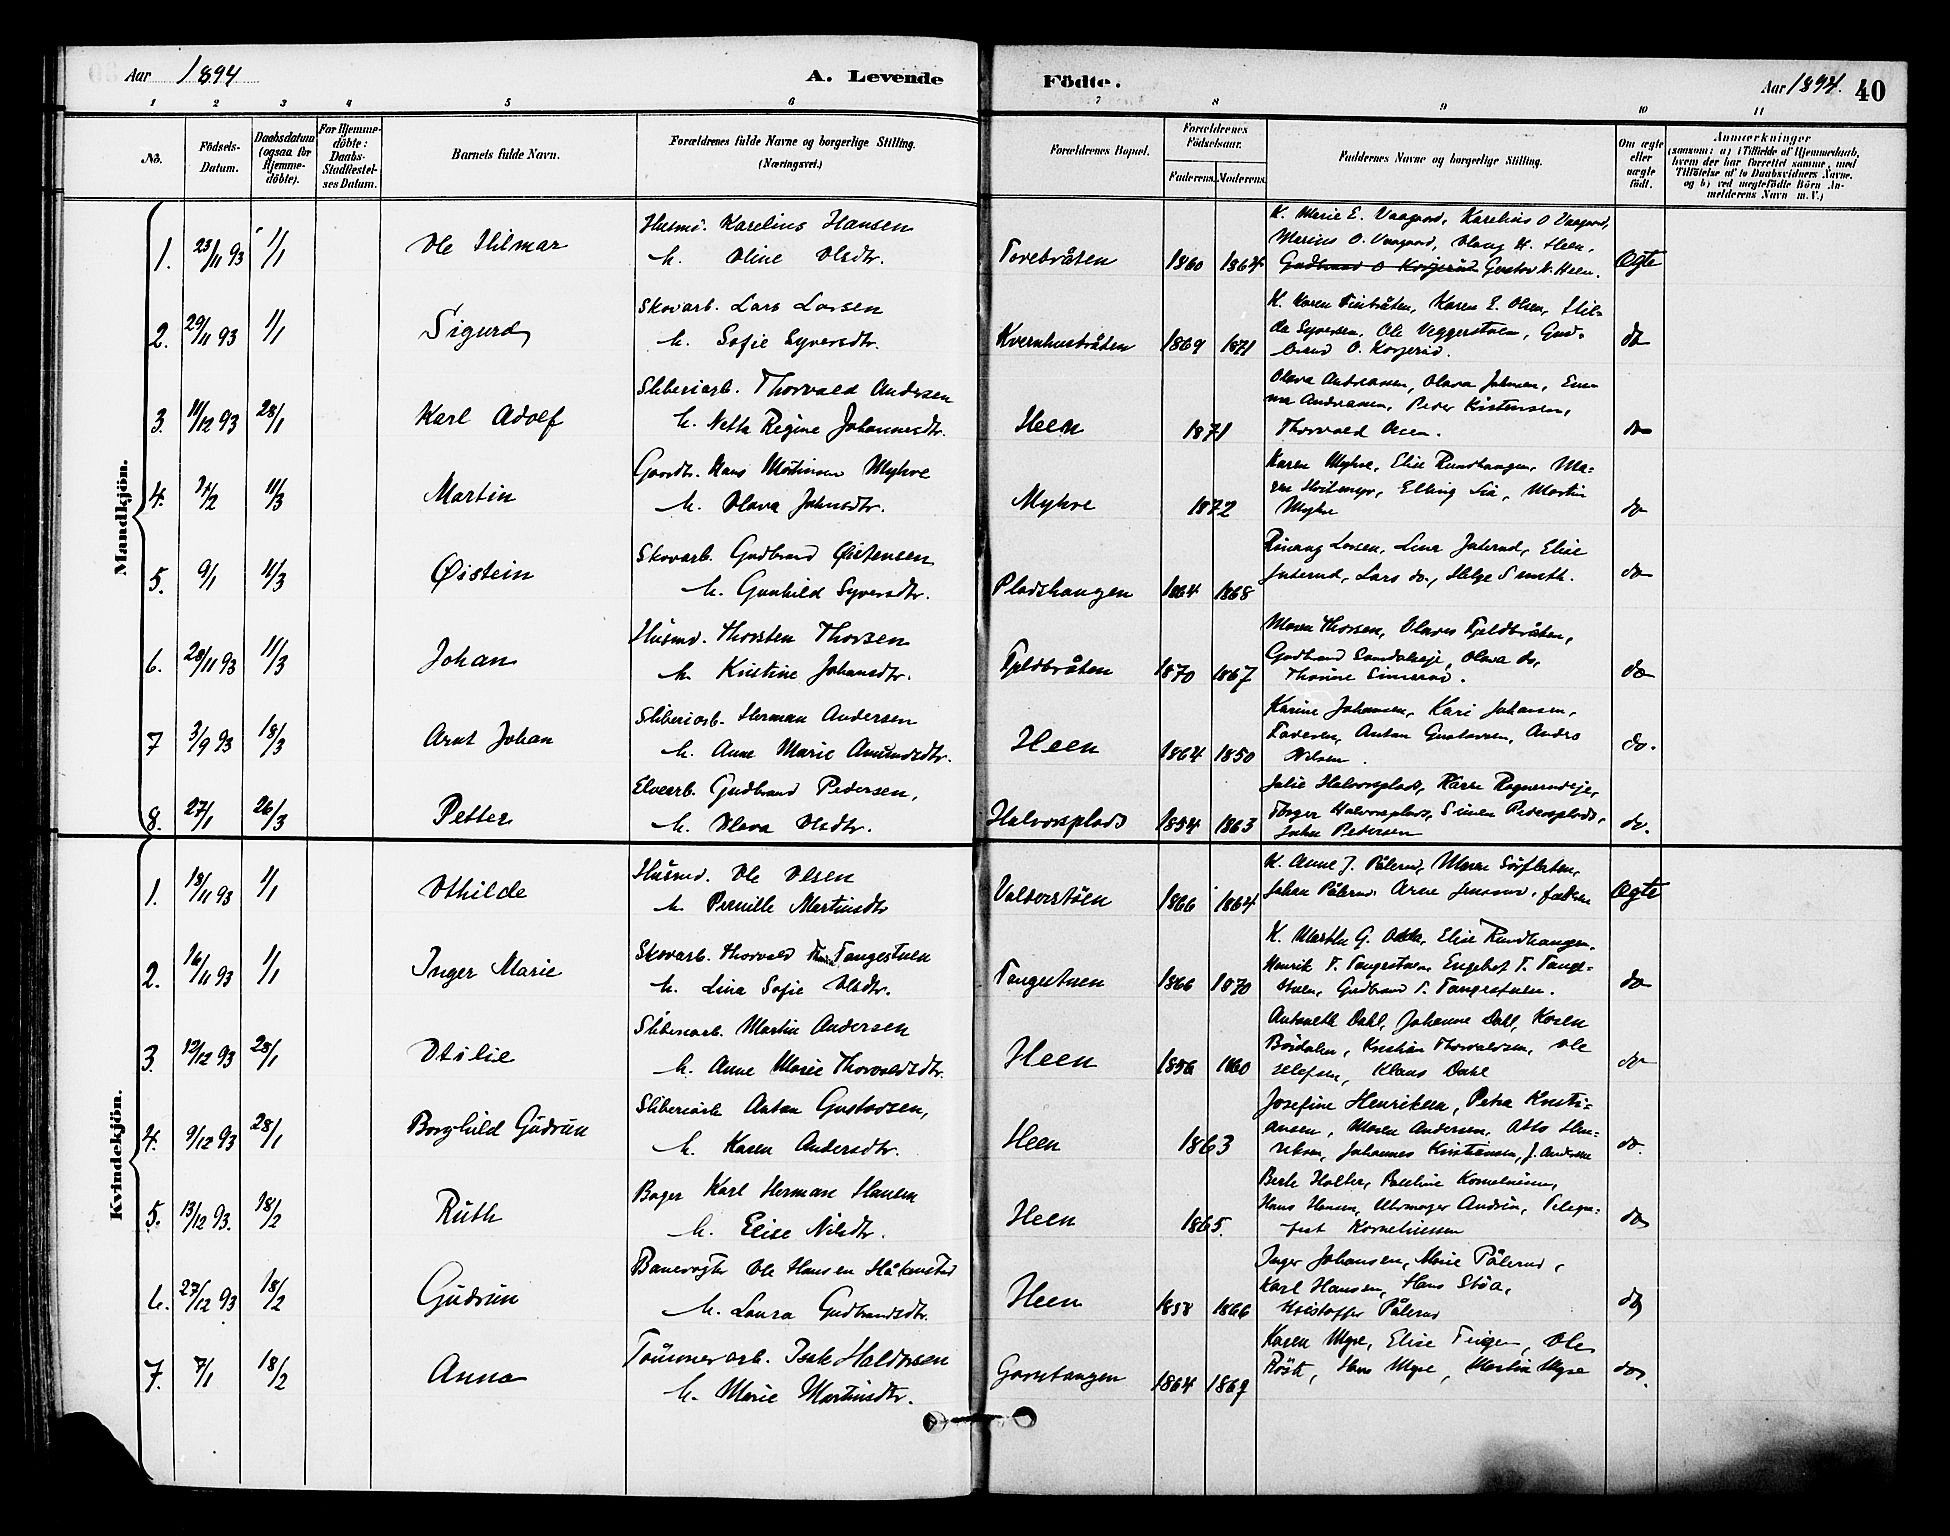 Aar 1894
A. Levende
Födte.
Aar 1894.
40
1 2 3 4 5 6 7 8 9 10 11
No.
Födsels-Datum.
Daabsdatum (ogsaa for Hjemme-döbte).
For Hjemme-döbte: Daabs-Stadfestel-ses Datum.
Barnets fulde Navn.
Forældrenes fulde Navne og borgerlige Stilling. (Næringsvei.)
Forældrenes Bopæl.
Forældrenes Födselsaar.
Faderens. Moderens.
Faddernes Navne og borgerlige Stilling.
Om ægte eller uægte födt.
Anmærkninger
(saasom: a) i Tilfælde af Hjemmedaab, hvem der har forrettet samme, med Tilföielse af to Daabsvidners Navne. og b) ved uægtefödte Börn An-melderens Navn m. V.)
Mandkjön.
1. 23/11 93 1/1 Ole Hilmar
Husmd. Karelius Hansen
h. Oline Olsdtr.
Torebråten 1860 1864
K. Marie E. Vaagaard, Karelius O Vaagaard,
Marius O. Vaagaard, Olaug H. Heen,
Gudbrand O Korgerud Gustav N. Heen.
Ægte
2. 29/11 93 1/1 Sigurd
Skovarb. Lars Larsen
h. Sofie Syversdtr.
Kvernhusbråten 1869 1871
K. Karen Finbråten, Karen E. Olsen, Hil-
da Syversen, Ole Veggerstuen, Gud-
brand O. Korgerud.
do
3. 11/12 93 28/1 Karl Adolf
Sliberiarb. Thorvald Andersen
h. Netta Regine Johannesdtr.
Heen 1871
Olava Andreasen, Olava Johnsen, Em-
ma Andreasen, Peder Kristensen,
Thorvald Olsen.
do
4. 11/3 Martin
Gaardbr. Hans Martinsen Myhre
h. Olava Johnsdtr.
Myhre 1872
Karen Myhre, Elise Rundhaugen, Ma-
ren Hvitmyr, Elling Lia, Martin
Myhre
do
5. 9/1 Øistein
Skovarb. Gudbrand Øistensen
h. Gunhild Syversdtr.
Pladshaugen 1864 1868
Larsen, Lina Juterud, Elise
Juterud, Lars do., Helge Smeth.
do
6. 28/11 93 11/3 Johan
Husmd. Thorsten Thorsen
h. Kristine Johansdtr.
Fjeldbråten 1870 1867
Maren Thorsen, Olaves Fjeldbråten,
Gudbrand Sandakeje, Olava do,
Thorine Simerud.
do
7 3/9 93 18/3 Arnt Johan
Sliberiarb. Herman Andersen
h. Anne Marie Amundsdtr.
Heen 1864 1850
Karine Johansen, Kari Johansen,
Faderen, Anton Gustavsen, Andro
Nilsen.
do.
8. 27/1 26/3 Petter
Elvearb. Gudbrand Pedersen,
h. Olava Olsdtr.
Halvorsplads 1854 1863
Julie Halvorsplads, Karen Ragnerudeje,
Thorger Halvorsplads, Simen Pedersplads,
John Pedersen
do.
Kvindekjön.
1. 18/11 93 1/1 Othilde
Husmd. Ole Olsen
h. Pernille Martinsdtr
Valdersstøen 1866 1864
K. Anne J. Pålerud, Maren Sørfleten,
Johan Pålerud Arne Jensrud, faderen
Ægte
2. 16/11 93 1/1 Inger Marie
Skovarb. Thorvald Tangestuen
h. Lina Sofie Olsdtr.
Tangestuen 1866 1870
K. Marthe G. Elise Rundhaugen,
Henrik T. Tangestuen, Engebret T. Tange-
stuen, Gudbrand T. Tangestuen.
do
3. 12/12 93 28/1 Otilie
Sliberiarb. Martin Andersen
h. Anne Marie Thorvaldsdtr.
Heen 1856 1860
Antonette Dahl, Johanne Dahl, Karen
Bårdalen, Kristian Thorvaldsen, Ole
Klaus Dahl
do
4. 9/12 93 28/1 Borghild Gudrun
Sliberiarb Anton Gustavsen,
h. Karen Andersdtr.
Heen 1863
Josefine Henriksen, Petra Kristi-
ansen, Maren Andersen, Otto Hen-
riksen, Johannes Kristiansen, J. Andersen
do.
5. 13/12 93. 18/2 Ruth
Bager Karl Herman Hansen
h. Elise Nilsdtr.
Heen 1865.
Berte Holter, Pauline Korneliussen,
Hans Hansen, Uhrmager Andrin, Telegra-
fist Korneliussen
do
6. 27/12 93 18/2 Gudrun
Banevogter Ole Hansen Håkenstad
h. Laura Gudbrandsdtr.
Heen 1858 1866
Inger Johansen, Marie Pålerud,
Karl Hansen, Hans Støa,
Kristoffer Pålerud
do
7. 7/1 18/2 Anna
Tømmerarb. Isak Haldorsen
h. Marie Martinsdtr.
Garntangen 1864 1869
Karen Myre, Elise Teigen, Ole
Røste, Hans Myre, Martin Myre
do.